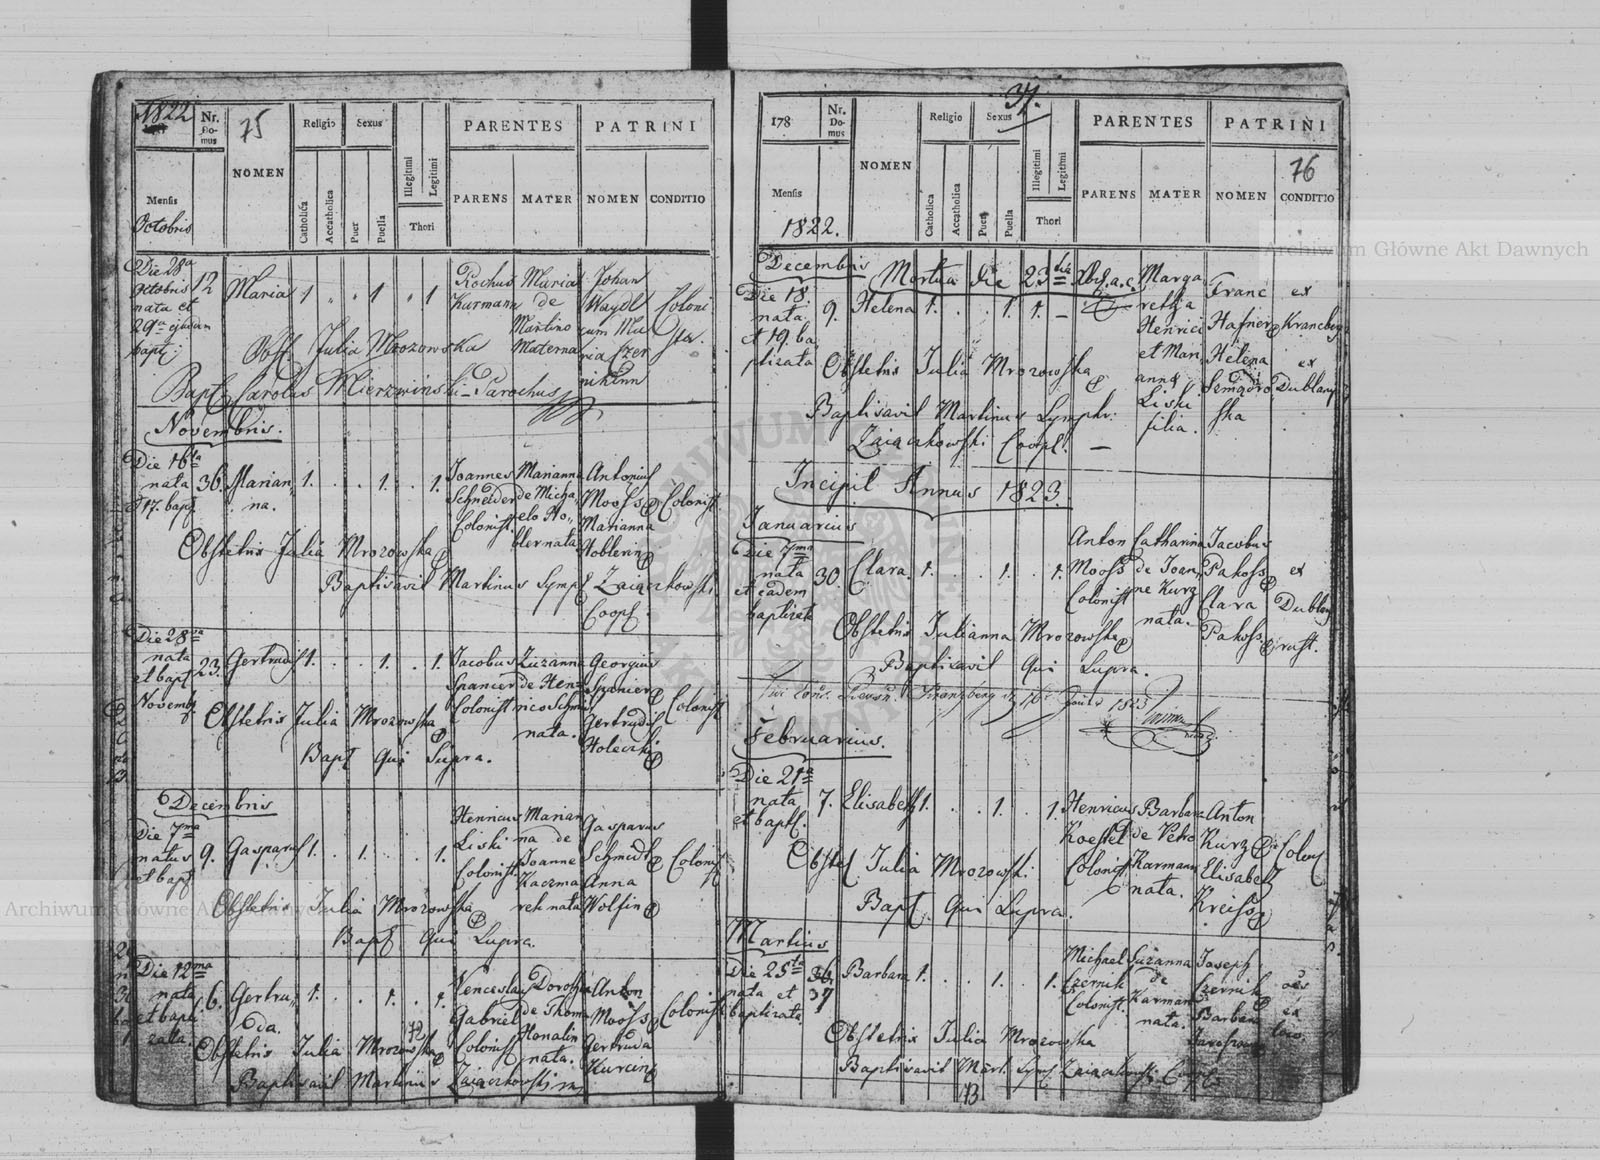 1822
75
Nr. Domus
NOMEN
Religio
Sexus
Catholica
Accatholica
Puer
Puella
Illegitimi
Legitimi
Thori
PARENTES
PATRINI
PARENS MATER NOMEN CONDITIO
Mensis
Octobris
Die 28a Octobris nata et 29a ejusdem bapt:
12
Maria
1 " " 1 " 1
Rochus Kurmann
Maria de Martino Materna
Johan Waydl cum Maria
Coloni
Obst Julia Mrozowska
Bapt Carolus Mierzwinski Parochus
Novembris.
Die 16ta nata et 17. bapt
36.
Marianna.
1. . . 1. . 1.
Joannes Schneider Colonist.
Marianna de Michaelo Noblernata
Antonius Mooss et Marianna Noblerin
Colonist
Obstetrix Julia Mrozowska
Baptisavit Martinus Symp Zaiączkowski
Coop.
Die 28va nata et bapt Novemb
23.
Gertrudis
1. . . 1. . 1.
Jacobus Spanier Colonist
Zuzanna de Henrico Schmid nata.
Georgius Spanier Gertrudis Holeczki
Colonist
Obstetrix Julia Mrozowska
Bapt Qui Supra.
Decembris
Die 7ma natus et bapt
9.
Gasparus
1. . 1. . . 1.
Henricus Liski Colonist.
Marianna de Joanne Kaczmarek nata
Gasparus Schmidt Anna Wolfin
Colonist
Obstetrix Julia Mrozowska
Bapt Qui Supra.
Die 12ma nata et baptizatta.
6.
Gertruda.
1. . . 1. . 1.
Venceslaus Gabriel Colonist
Dorothea de Thoma Honalin nata.
Anton Mooss Gertruda Kurcin
Colonist.
72
Obstetrix Julia Mrozowska
Baptisavit Martinus Zaiączkowski
37.
178
Nr. Domus
NOMEN
Religio
Sexus
Catholica
Accatholica
Puer
Puella
Illegitimi
Legitimi
Thori
PARENTES
PATRINI
76
PARENS MATER NOMEN CONDITIO
Mensis
1822.
Decembris
Mortua die 23
Die 18. nata et 19. baptizata
9.
Helena
1. . . 1. 1. –
Margaretha Henrici et Marianna Liski filia.
Franc Hafner Helena
ex Kranzberg ex Dublany
Obstetrix Julia Mrozowska
Baptisavit Martinus Symphr:
Zaiączkowski Coopt. –
Incipit Annus 1823.
Januarius
Die 7ma nata et eadem baptizata
30.
Clara.
1. . . 1. . 1.
Anton Mooss Colonist
Catharina de Joanne Kurz nata.
Jacobus Pakoss Clara Pakoss.
ex Dublany rust.
Obstetrix Julianna Mrozowska
Baptisavit Qui Supra.
1823
Februarius.
Die 21a nata et bapt.
7.
Elisabeth
1. . . 1. . 1.
Henricus Koestel Colonist
Barbara de Petro Karmann nata.
Anton Kurz Elisabeth Kreiss
Colon
Obstet Julia Mrozowski
Bapt Qui Supra.
Martius
Die 25ta nata et baptizata.
37
Barbara
1. . . 1. . 1.
Michael Czernik Colonist.
Suzanna de Karmann nata.
Joseph Czernik Barbara
ex loco.
Obstetrix Julia Mrozowska
Baptisavit Mart. Symp. Zaiączkowski Coop
73
Archiwum Główne Akt Dawnych
Archiwum Główne Akt Dawnych